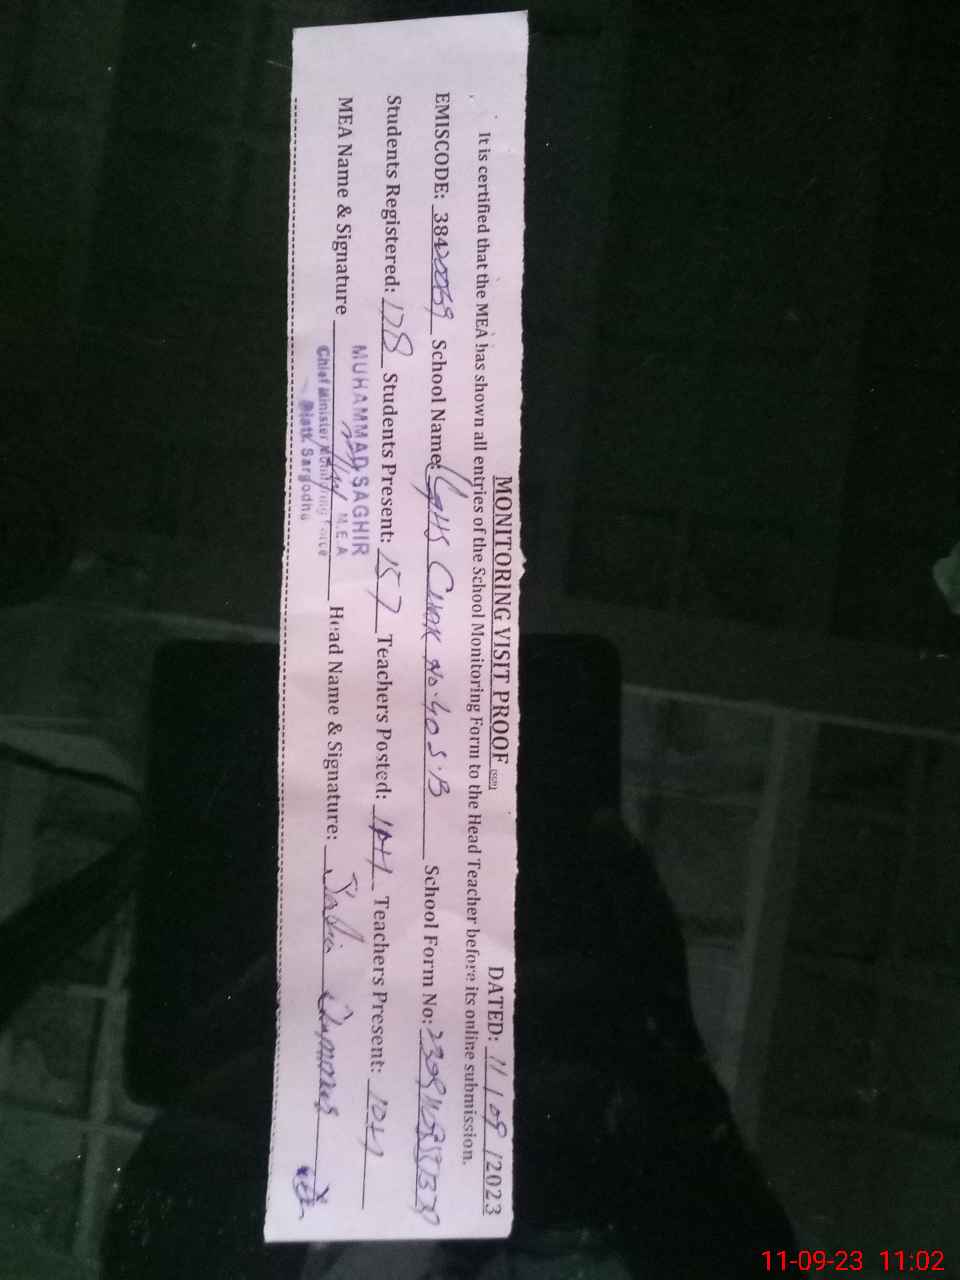 MONITORING VISIT PROOF
DATED: 11/09/2023
It is certified that the MEA has shown all entries of the School Monitoring Form to the Head Teacher before its online submission.
EMISCODE: 38420069 School Name: GGHS CHAK No. 40 S.B School Form No:
Students Registered: 178 Students Present: 157 Teachers Posted: 10+1 Teachers Present: 10+1
MEA Name & Signature Head Name & Signature:
MUHAMMAD SAGHIR
M.E.A
Chief Minister Monitoring Force
Distt. Sargodha
11-09-23 11:02